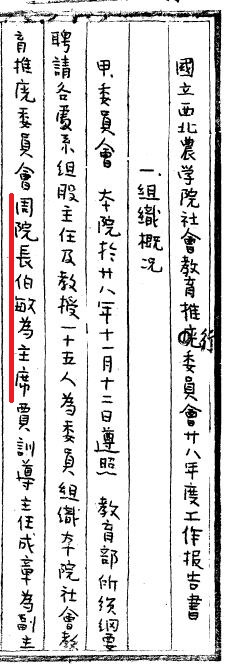 國立西北農学院社會教育推行委員會廿八年度工作报告書
一.組織概况
甲.委員會 本院於廿八年十一月十二日遵照 教育部所颁綱要
聘請各處系組股主任及教授一十五人為委員組織本院社會教
育推広委員會周院長伯敏為主席賈訓導主任成章為副主